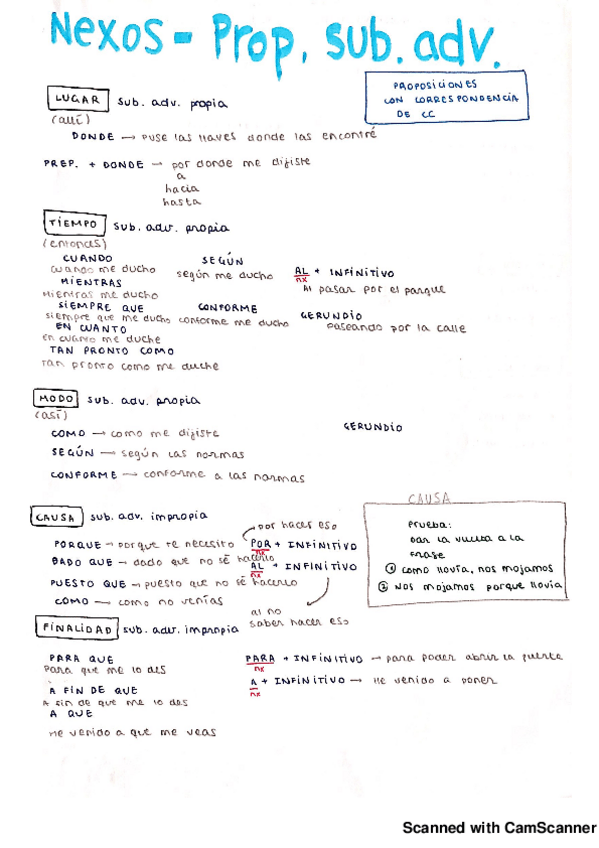 Nexos - Prop. sub. adv.
PROPOSICIONES
CON CORRESPONDENCIA
DE CC
LUGAR sub. adv. propia
(allí)
DONDE → Puse las llaves donde las encontré
PREP. + DONDE → por donde me dijiste
a
hacia
hasta
TIEMPO sub. adv. propia
(entonces)
CUANDO
cuando me ducho
MIENTRAS
Mientras me ducho
SIEMPRE QUE
siempre que me ducho
EN CUANTO
en cuanto me duche
TAN PRONTO COMO
tan pronto como me duche
SEGÚN
según me ducho
CONFORME
conforme me ducho
AL + INFINITIVO
nx
Al pasar por el parque
GERUNDIO
paseando por la calle
MODO sub. adv. propia
(así)
COMO → como me dijiste
SEGÚN → según las normas
CONFORME → conforme a las normas
GERUNDIO
CAUSA sub. adv. impropia
PORQUE → porque te necesito
DADO QUE → dado que no sé hacerlo
PUESTO QUE → puesto que no sé hacerlo
COMO → como no venías
por hacer eso
POR + INFINITIVO
nx
AL + INFINITIVO
nx
al no
saber hacer eso
CAUSA
Prueba:
Dar la vuelta a la
frase
① Como llovía, nos mojamos
② Nos mojamos porque llovía
FINALIDAD sub. adv. impropia
PARA QUE
Para que me lo des
A FIN DE QUE
A fin de que me lo des
A QUE
He venido a que me veas
PARA + INFINITIVO → para poder abrir la puerta
nx
A + INFINITIVO → He venido a poner
nx
Scanned with CamScanner